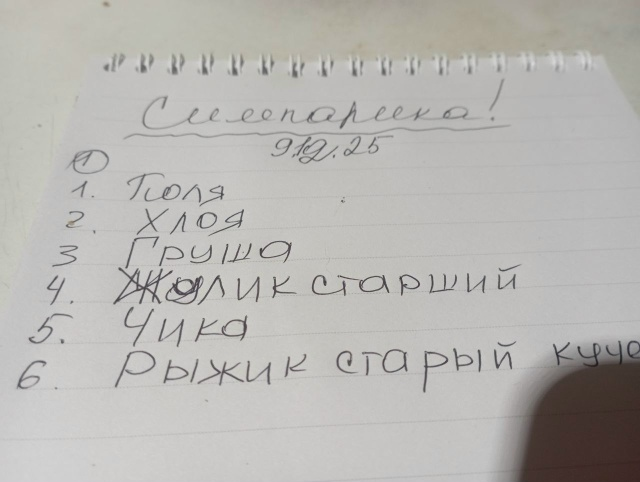 Симпарика!
9.12.25
①
1. Тюля
2. Хлоя
3 Груша
4. Жулик старший
5. Чика
6. Рыжик старый куче